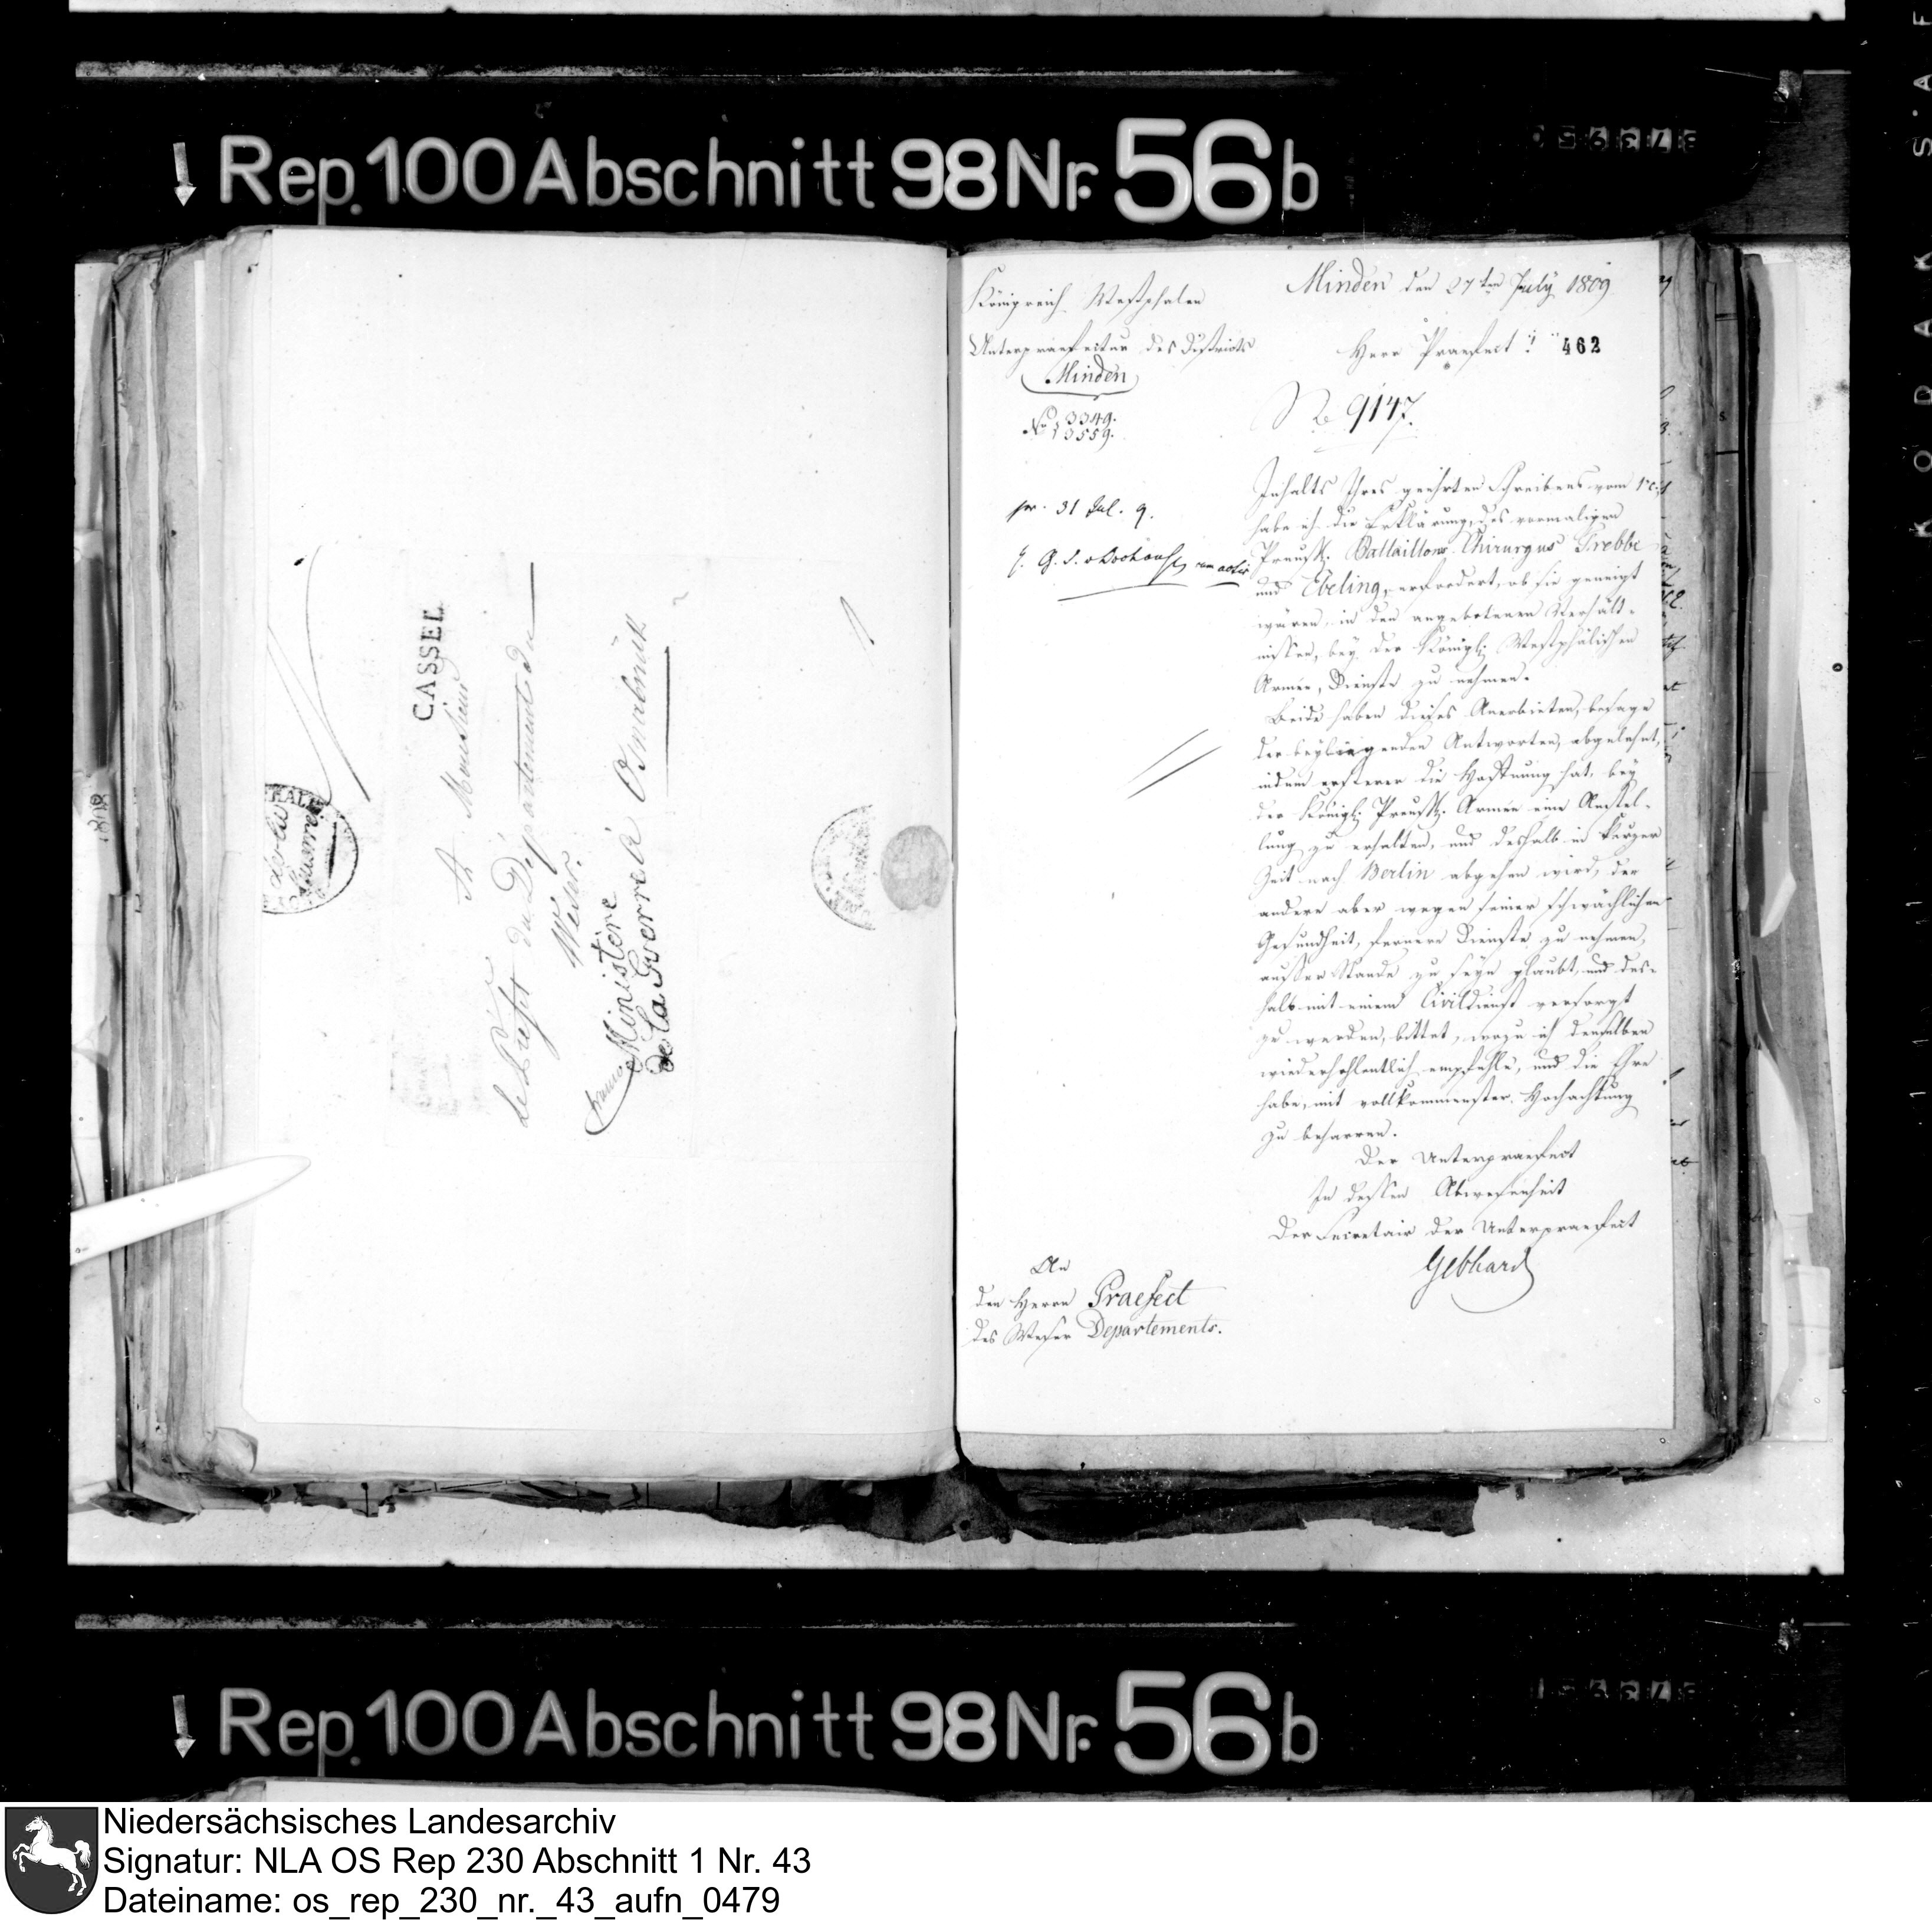 Rep. 100 Abschnitt 98 Nr. 56 b
CASSEL
A Monsieur
Le Préfet du Département du
Weser.
Osnabrück
franco
Ministère
de la Guerre
à
de la
Guerre
Königreich Westphalen
Unterpraefectur des Districts
Minden
No 3349.
13559.
pr. 31 Jul. 9.
Minden den 27ten July 1809
Herr Praefect!
462
No 9147.
Inhalts Ihres geehrten Schreibens vom
habe ich die Erklärung des vormaligen
Preuß. Bataillons Chirurgus Grebbe
und Ebeling, erfordert, ob sie geneigt
wären, in den angebotenen Verhält-
nissen, bey der Königl. Westphälischen
Armee, Dienste zu nehmen.
Beide haben dieses Anerbieten, besage
der beyliegenden Antworten, abgelehnt,
indem ersterer die Hoffnung hat, bey
der Königl. Preuß. Armee eine Anstel-
lung zu erhalten, und deshalb in kurzer
Zeit nach Berlin abgehen wird, der
andere aber wegen seiner schwächlichen
Gesundheit, fernere Dienste zu nehmen,
ausser Stande zu seyn glaubt, und des-
halb mit einem Civildienst versorgt
zu werden, bittet, wozu ich denselben
wiederhohlentlich empfehle, und die Ehre
habe, mit vollkommenster Hochachtung
zu beharren.
Der Unterpraefect
In dessen Abwesenheit
Der Secretair der Unterpraefect
Gebhard
An
den Herrn Praefect
des Weser Departements.
Rep. 100 Abschnitt 98 Nr. 56 b
Niedersächsisches Landesarchiv
Signatur: NLA OS Rep 230 Abschnitt 1 Nr. 43
Dateiname: os_rep_230_nr._43_aufn_0479